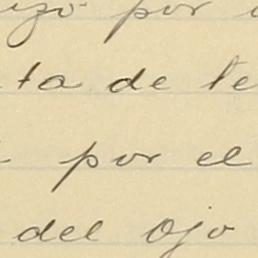 por
ta de te
por el
del Ojo